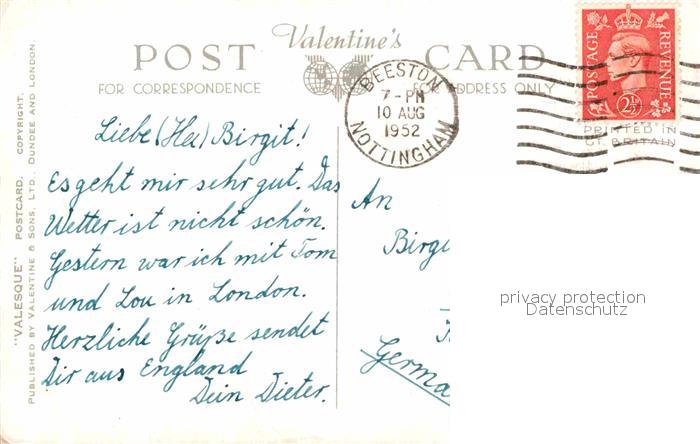 "VALESQUE" POSTCARD. COPYRIGHT.
PUBLISHED BY VALENTINE & SONS, LTD., DUNDEE AND LONDON.
POST Valentine's CARD
FOR CORRESPONDENCE FOR ADDRESS ONLY
BEESTON
7-PM
10 AUG
1952
NOTTINGHAM
POSTAGE REVENUE
2½D
PRINTED IN
GT. BRITAIN
Liebe Birgit!
Es geht mir sehr gut. Das
Wetter ist nicht schön.
Gestern war ich mit Tom
und Lou in London.
Herzliche Grüße sendet
Dir aus England
Dein Dieter.
An
Birgi
Germa
privacy protection
Datenschutz